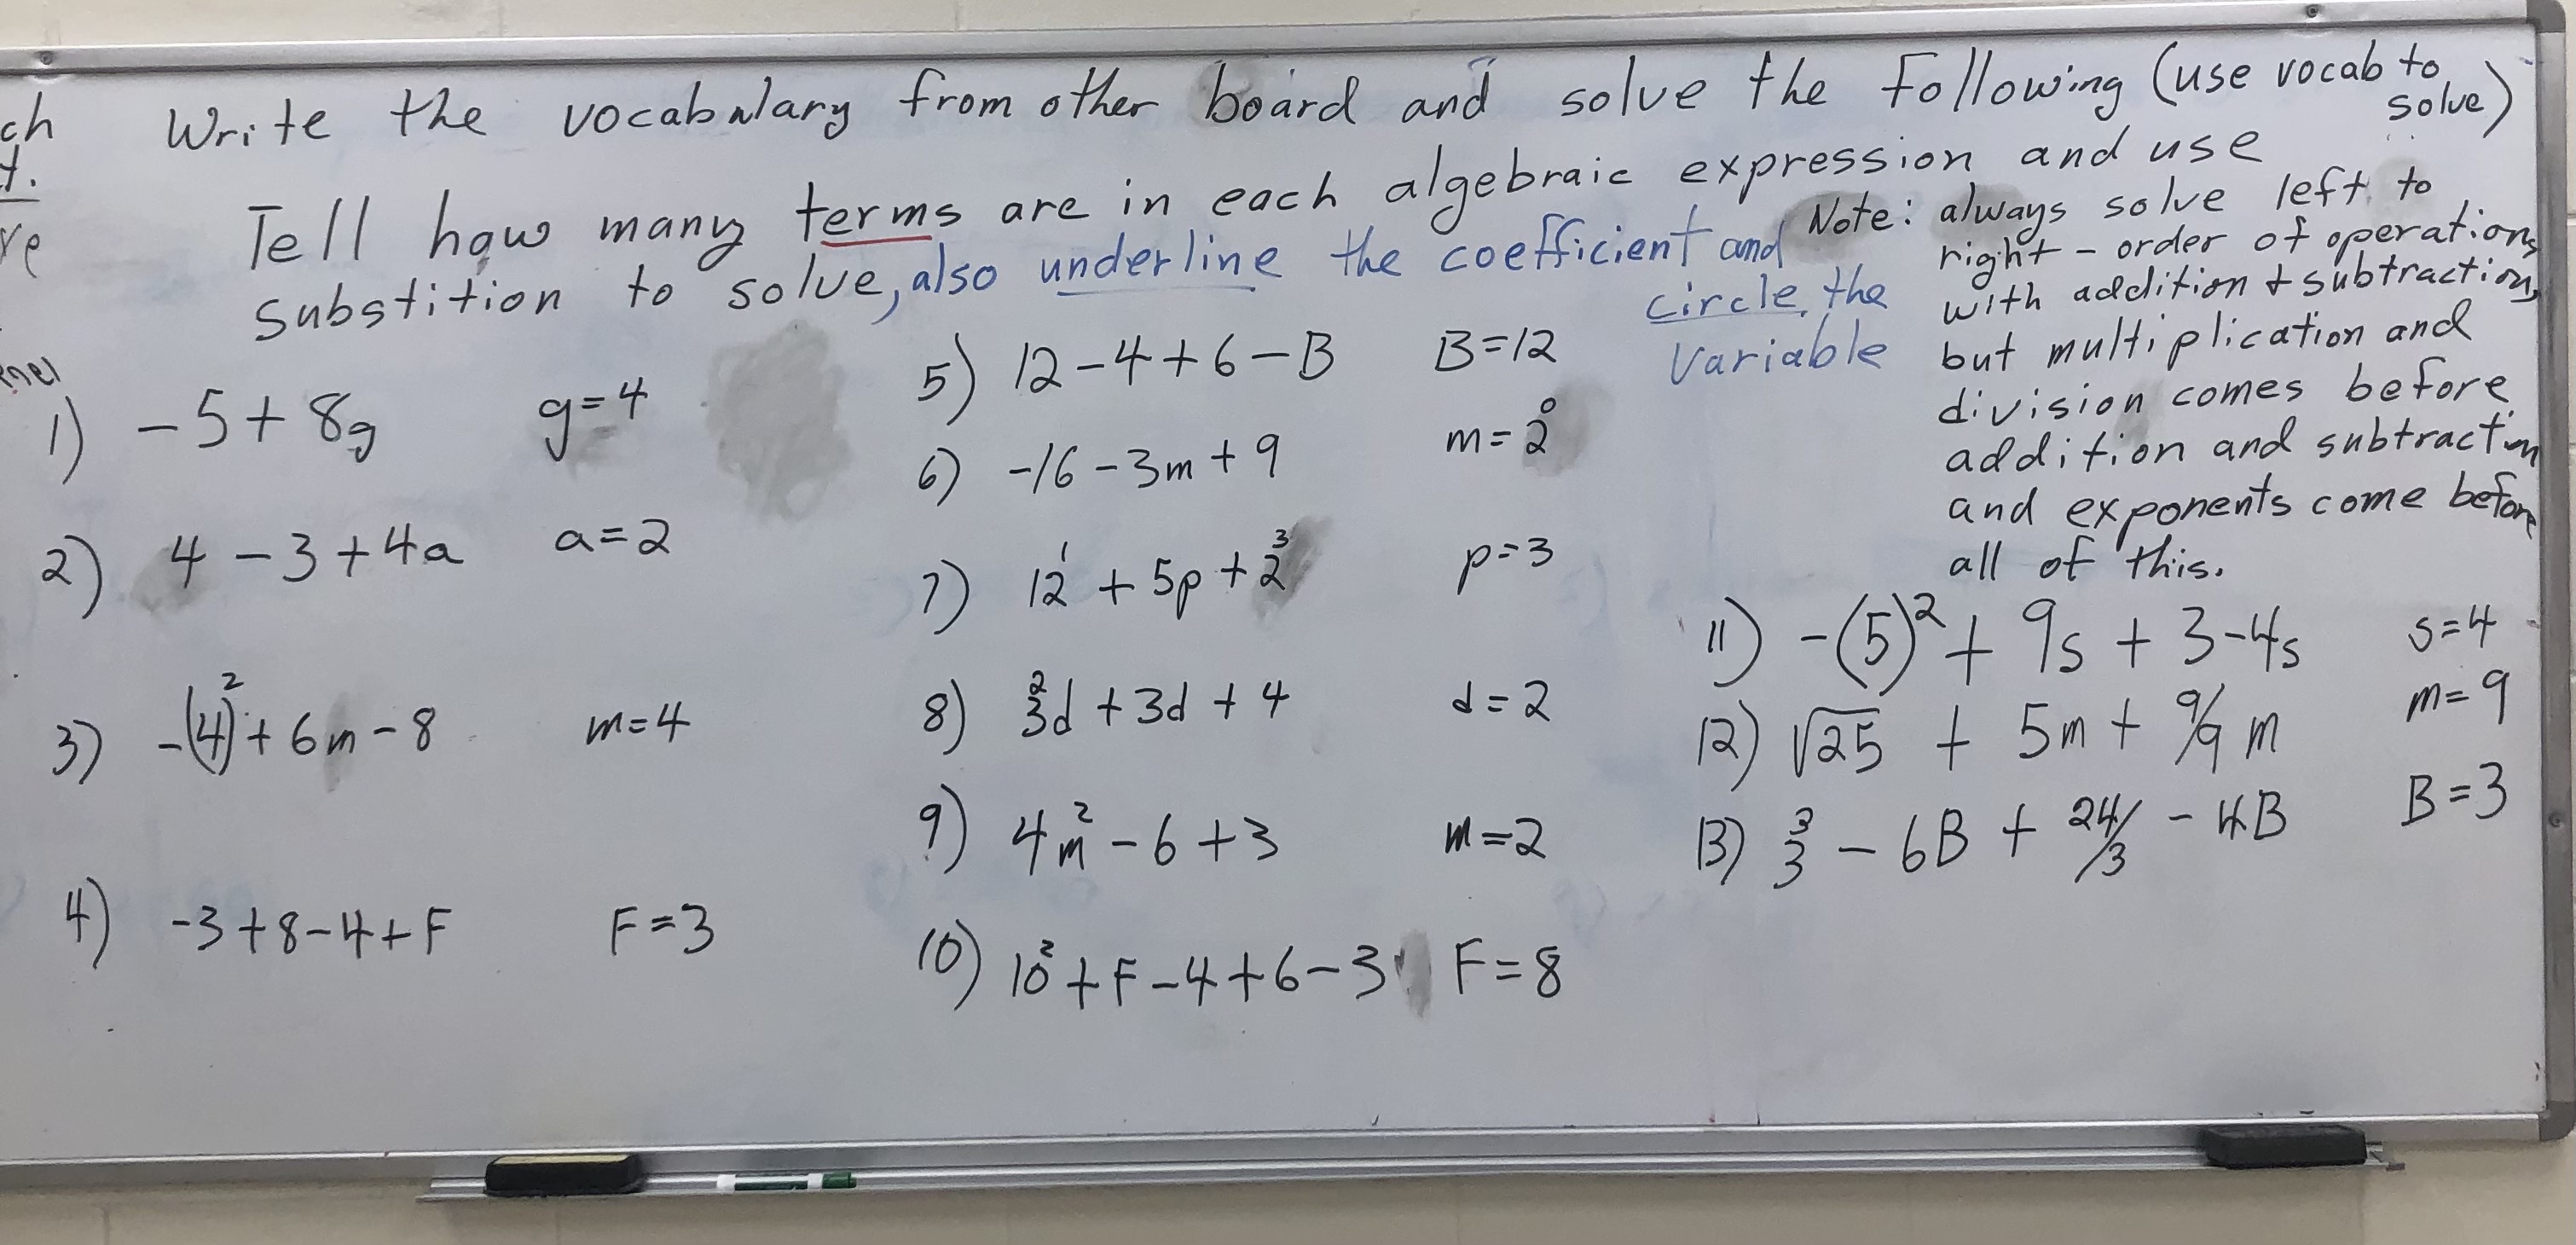 ch
t.
re
Write the vocabulary from other board and solve the following (use vocab to
solve)
Tell how many terms are in each algebraic expression and use
substition to solve, also underline the coefficient and
circle the
variable
Note: always solve left to
right - order of operations
with addition + subtraction,
but multiplication and
division comes before
addition and subtraction
and exponents come before
all of this.
1) -5 + 8g g=4
2) 4 - 3 + 4a a=2
3) -(4)² + 6m - 8 m=4
4) -3 + 8 - 4 + F F=3
5) 12 - 4 + 6 - B B=12
6) -16 - 3m + 9 m=2⁰
7) 12¹ + 5p + 2³ p=3
8) 3²d + 3d + 4 d=2
9) 4m² - 6 + 3 m=2
10) 10² + F - 4 + 6 - 3 F=8
11) -(5)² + 9s + 3 - 4s s=4
12) √25 + 5m + 9/9 m m=9
13) 3³ - 6B + 24/3 - 4B B=3